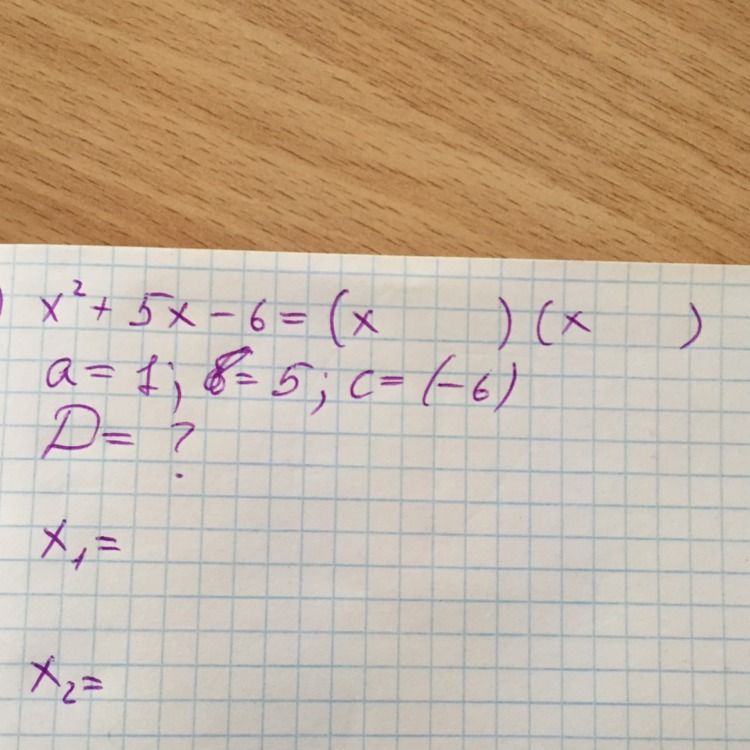 ) x² + 5x - 6 = (x      ) (x      )
a = 1; b = 5; c = (-6)
D = ?
x₁ =
x₂ =